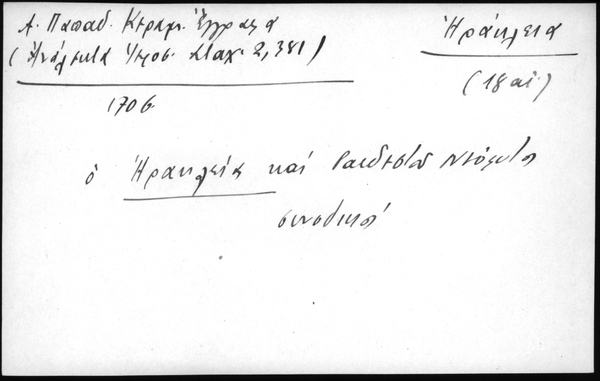 Α. Παπαδ. Κεραμ. Ἔγγραφα
(Ἀνάλεκτα Ἱεροσ. Σταχ. 2, 381)
Ἡράκλεια
(18 αἰ.)
1706
ὁ Ἡρακλείας καὶ Ραιδεστοῦ Νεόφυτος
συνοδικός